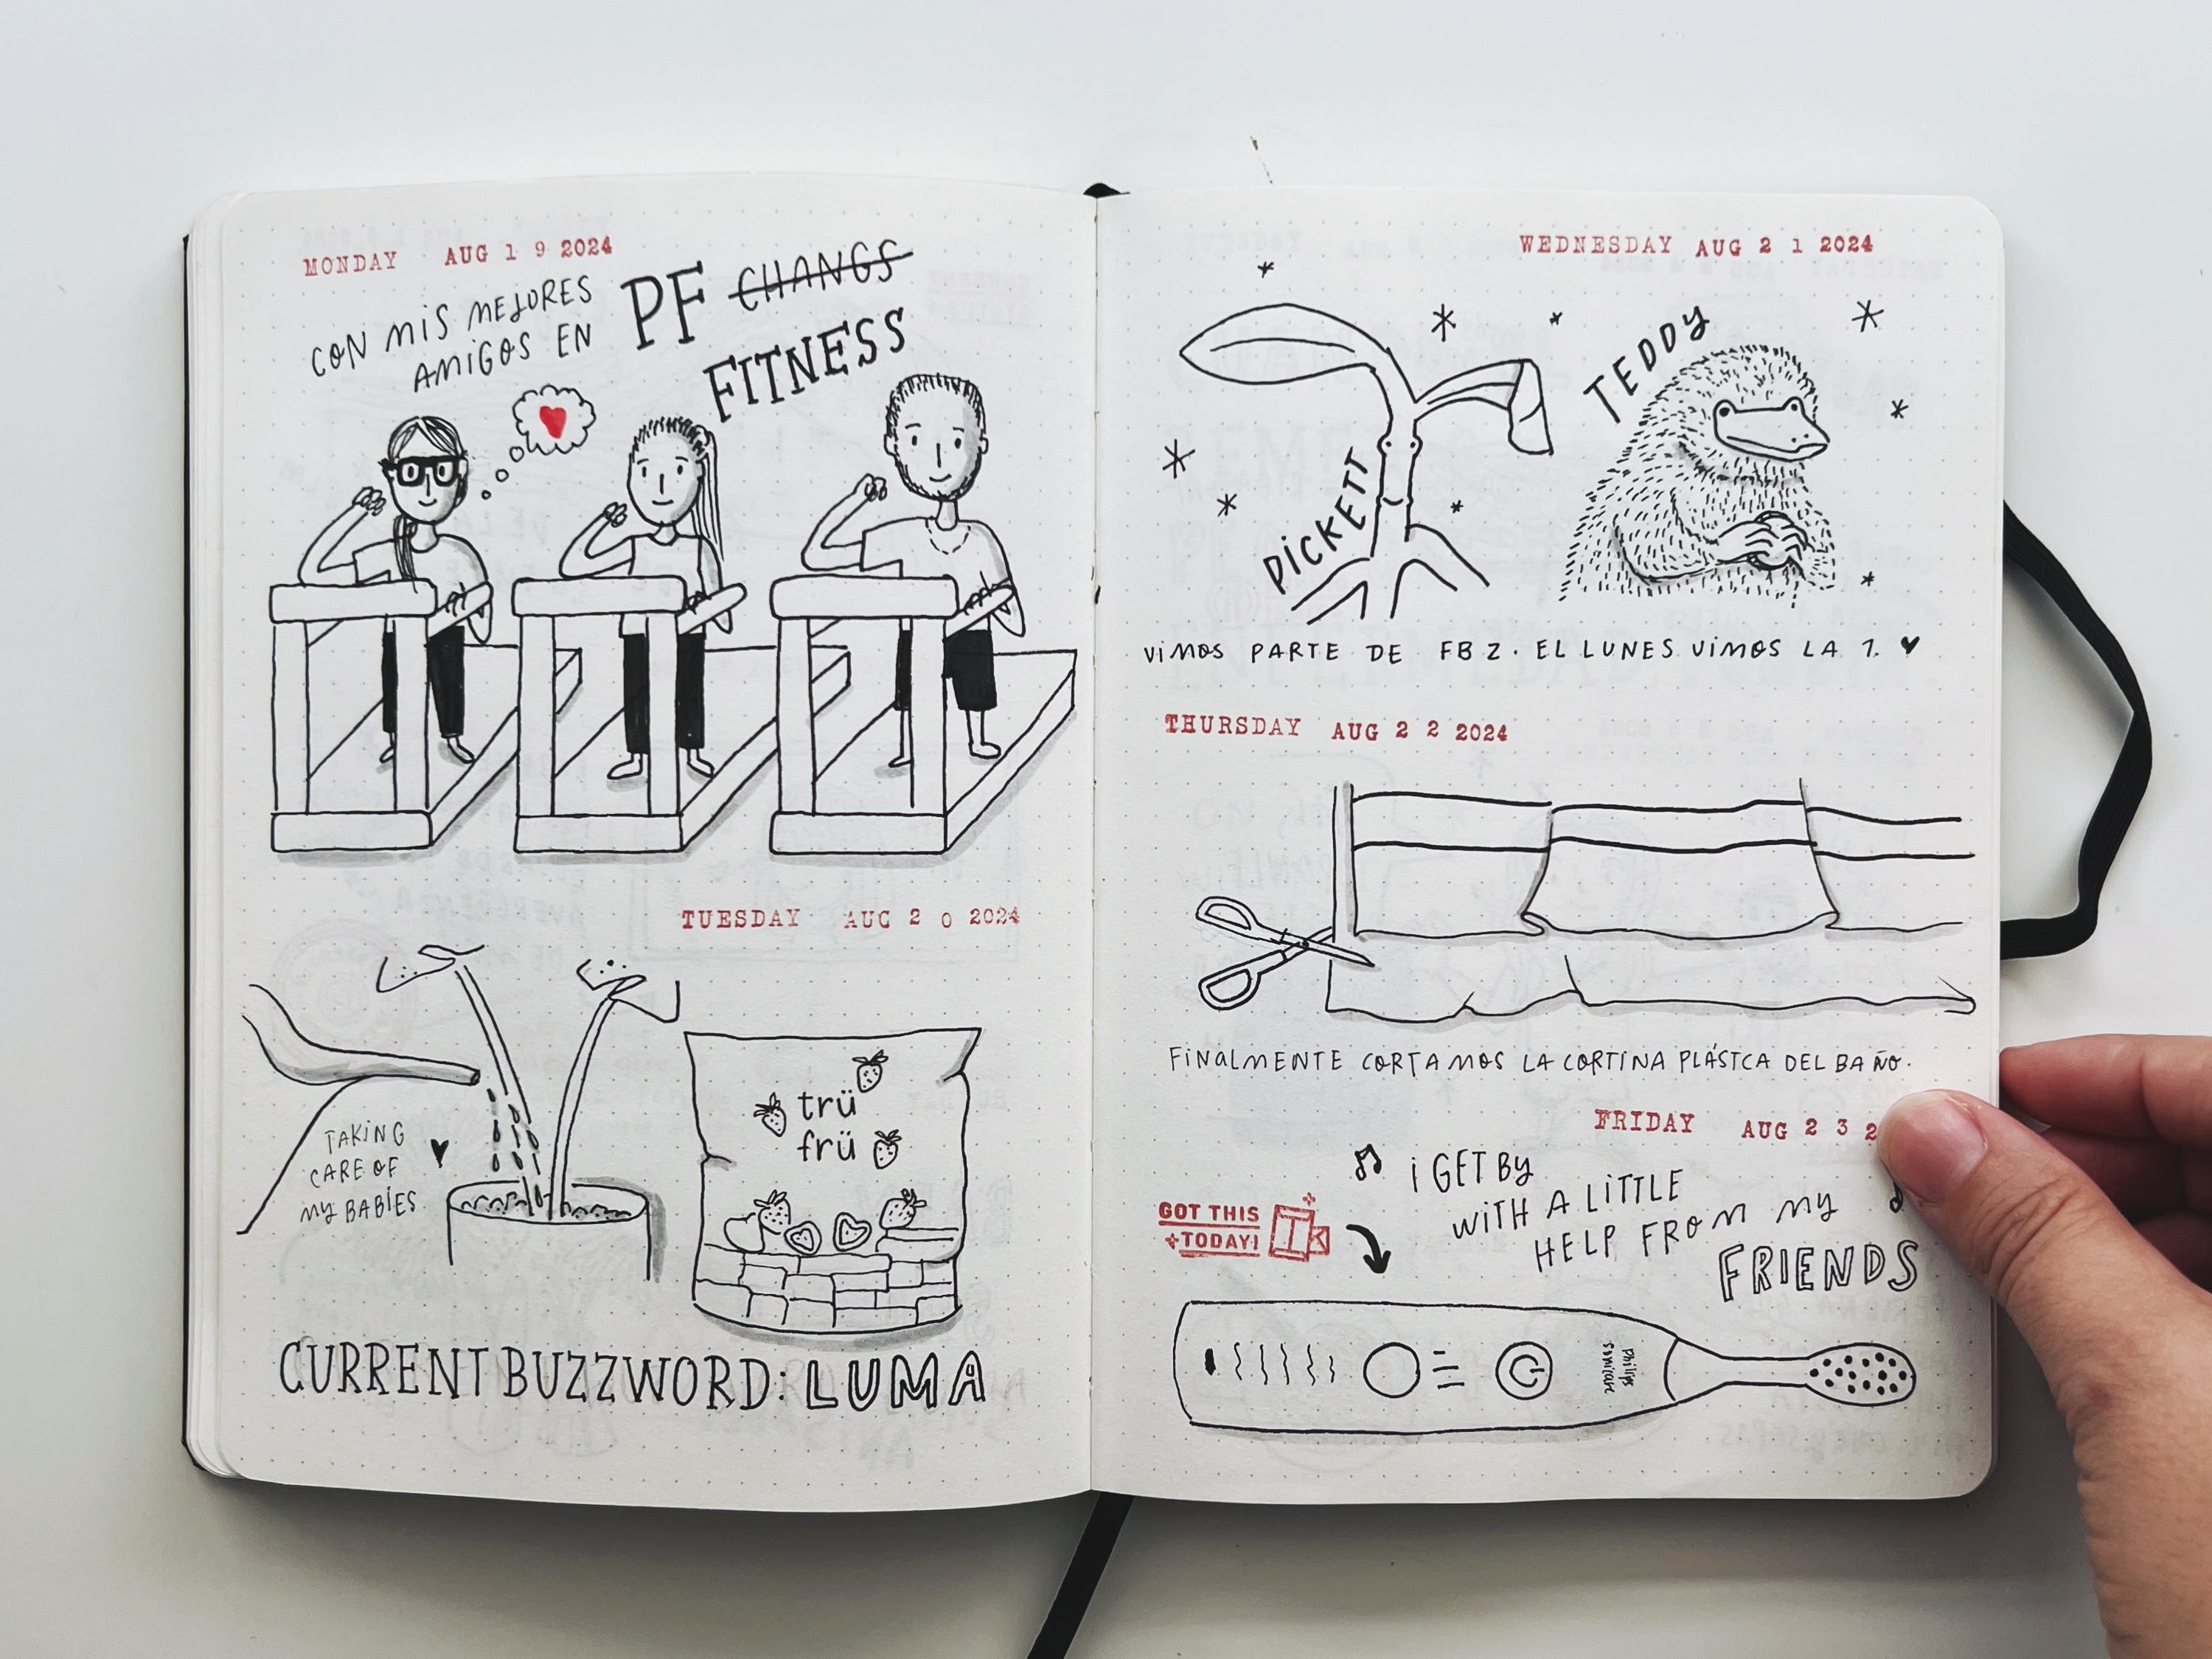 MONDAY AUG 1 9 2024
CON MIS MEJORES
AMIGOS EN
PF CHANGS
FITNESS
TUESDAY AUG 2 0 2024
TAKING
CARE OF
MY BABIES
trü
frü
CURRENT BUZZWORD: LUMA
WEDNESDAY AUG 2 1 2024
PICKETT
TEDDY
VIMOS PARTE DE FB 2. EL LUNES VIMOS LA 1.
THURSDAY AUG 2 2 2024
FINALMENTE CORTAMOS LA CORTINA PLÁSTCA DEL BAÑO.
FRIDAY AUG 2 3 2
I GET BY
WITH A LITTLE
HELP FROM MY
FRIENDS
GOT THIS
TODAY!
Philips
Sonicare